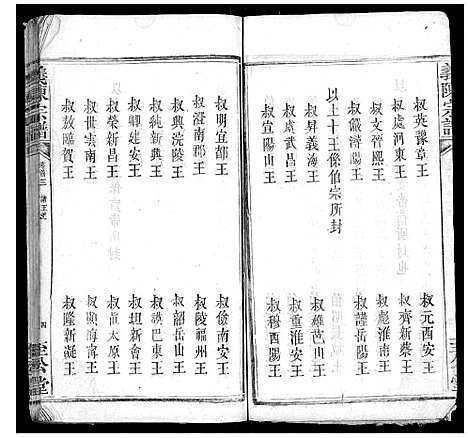 義陳宗譜
叔英豫章王
叔處河東王
叔文晉熙王
叔儼潯陽王
以上十王係伯宗所封
叔昇義海王
叔虞武昌王
叔宣陽山王
叔元酉安王
叔齊新蔡王
叔彪淮南王
叔謹岳陽王
叔羅巴山王
叔重淮安王
叔穆酉陽王
叔明宜都王
叔澄南郡王
叔興沅陵王
叔純新興王
叔卿建安王
叔榮新昌王
叔世雲南王
叔敖臨賀王
叔儉南安王
叔陵福州王
叔韶岳山王
叔謨巴東王
叔坦新會王
叔太原王
叔顯海南王
叔隆新凝王
義陳宗譜
諸王
四
至公堂